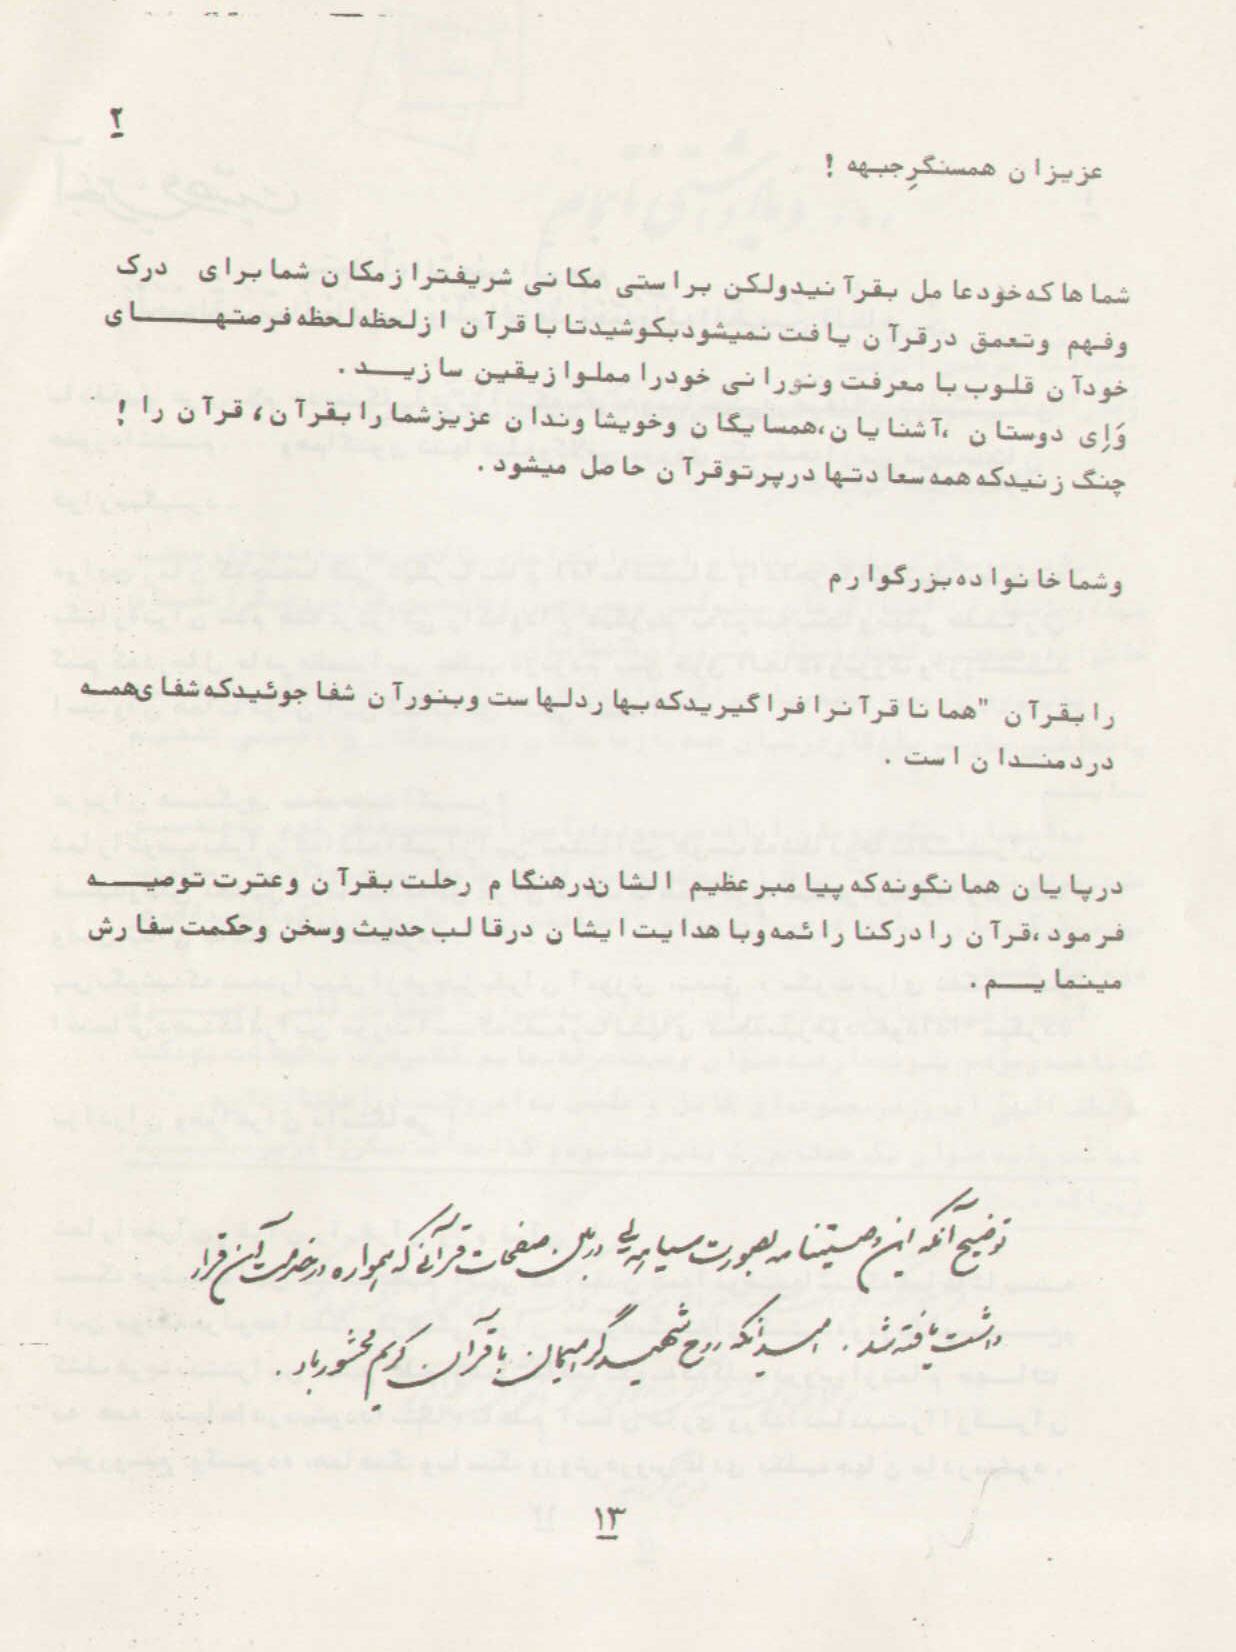 ۲
عزیزان همسنگرِ جبهه !
شماها که خود عامل بقرآنید ولکن براستی مکانی شریفتر از مکان شما برای درک
وفهم وتعمق درقرآن یافت نمیشود بکوشید تا با قرآن از لحظه لحظه فرصتهای
خودآن قلوب با معرفت ونورانی خودرا مملو از یقین سازید .
وَاِی دوستان ،آشنایان،همسایگان وخویشاوندان عزیز شما را بقرآن، قرآن را !
چنگ زنید که همه سعادتها در پرتو قرآن حاصل میشود .
وشما خانواده بزرگوارم
را بقرآن "همانا قرآنرا فراگیرید که بهار دلهاست وبنورآن شفا جوئید که شفای همه
دردمندان است .
درپایان همانگونه که پیامبر عظیم الشان درهنگام رحلت بقرآن وعترت توصیه
فرمود ،قرآن را درکنار ائمه وبا هدایت ایشان درقالب حدیث وسخن وحکمت سفارش
مینمایم .
توضیح آنکه این وصیتنامه بصورت سیاهه‌یی در بین صفحات قرآنی که همواره در خدمت آن قرار
داشت یافته شد . امید آنکه روح شهید گرامیمان با قرآن کریم محشور باد .
۱۳